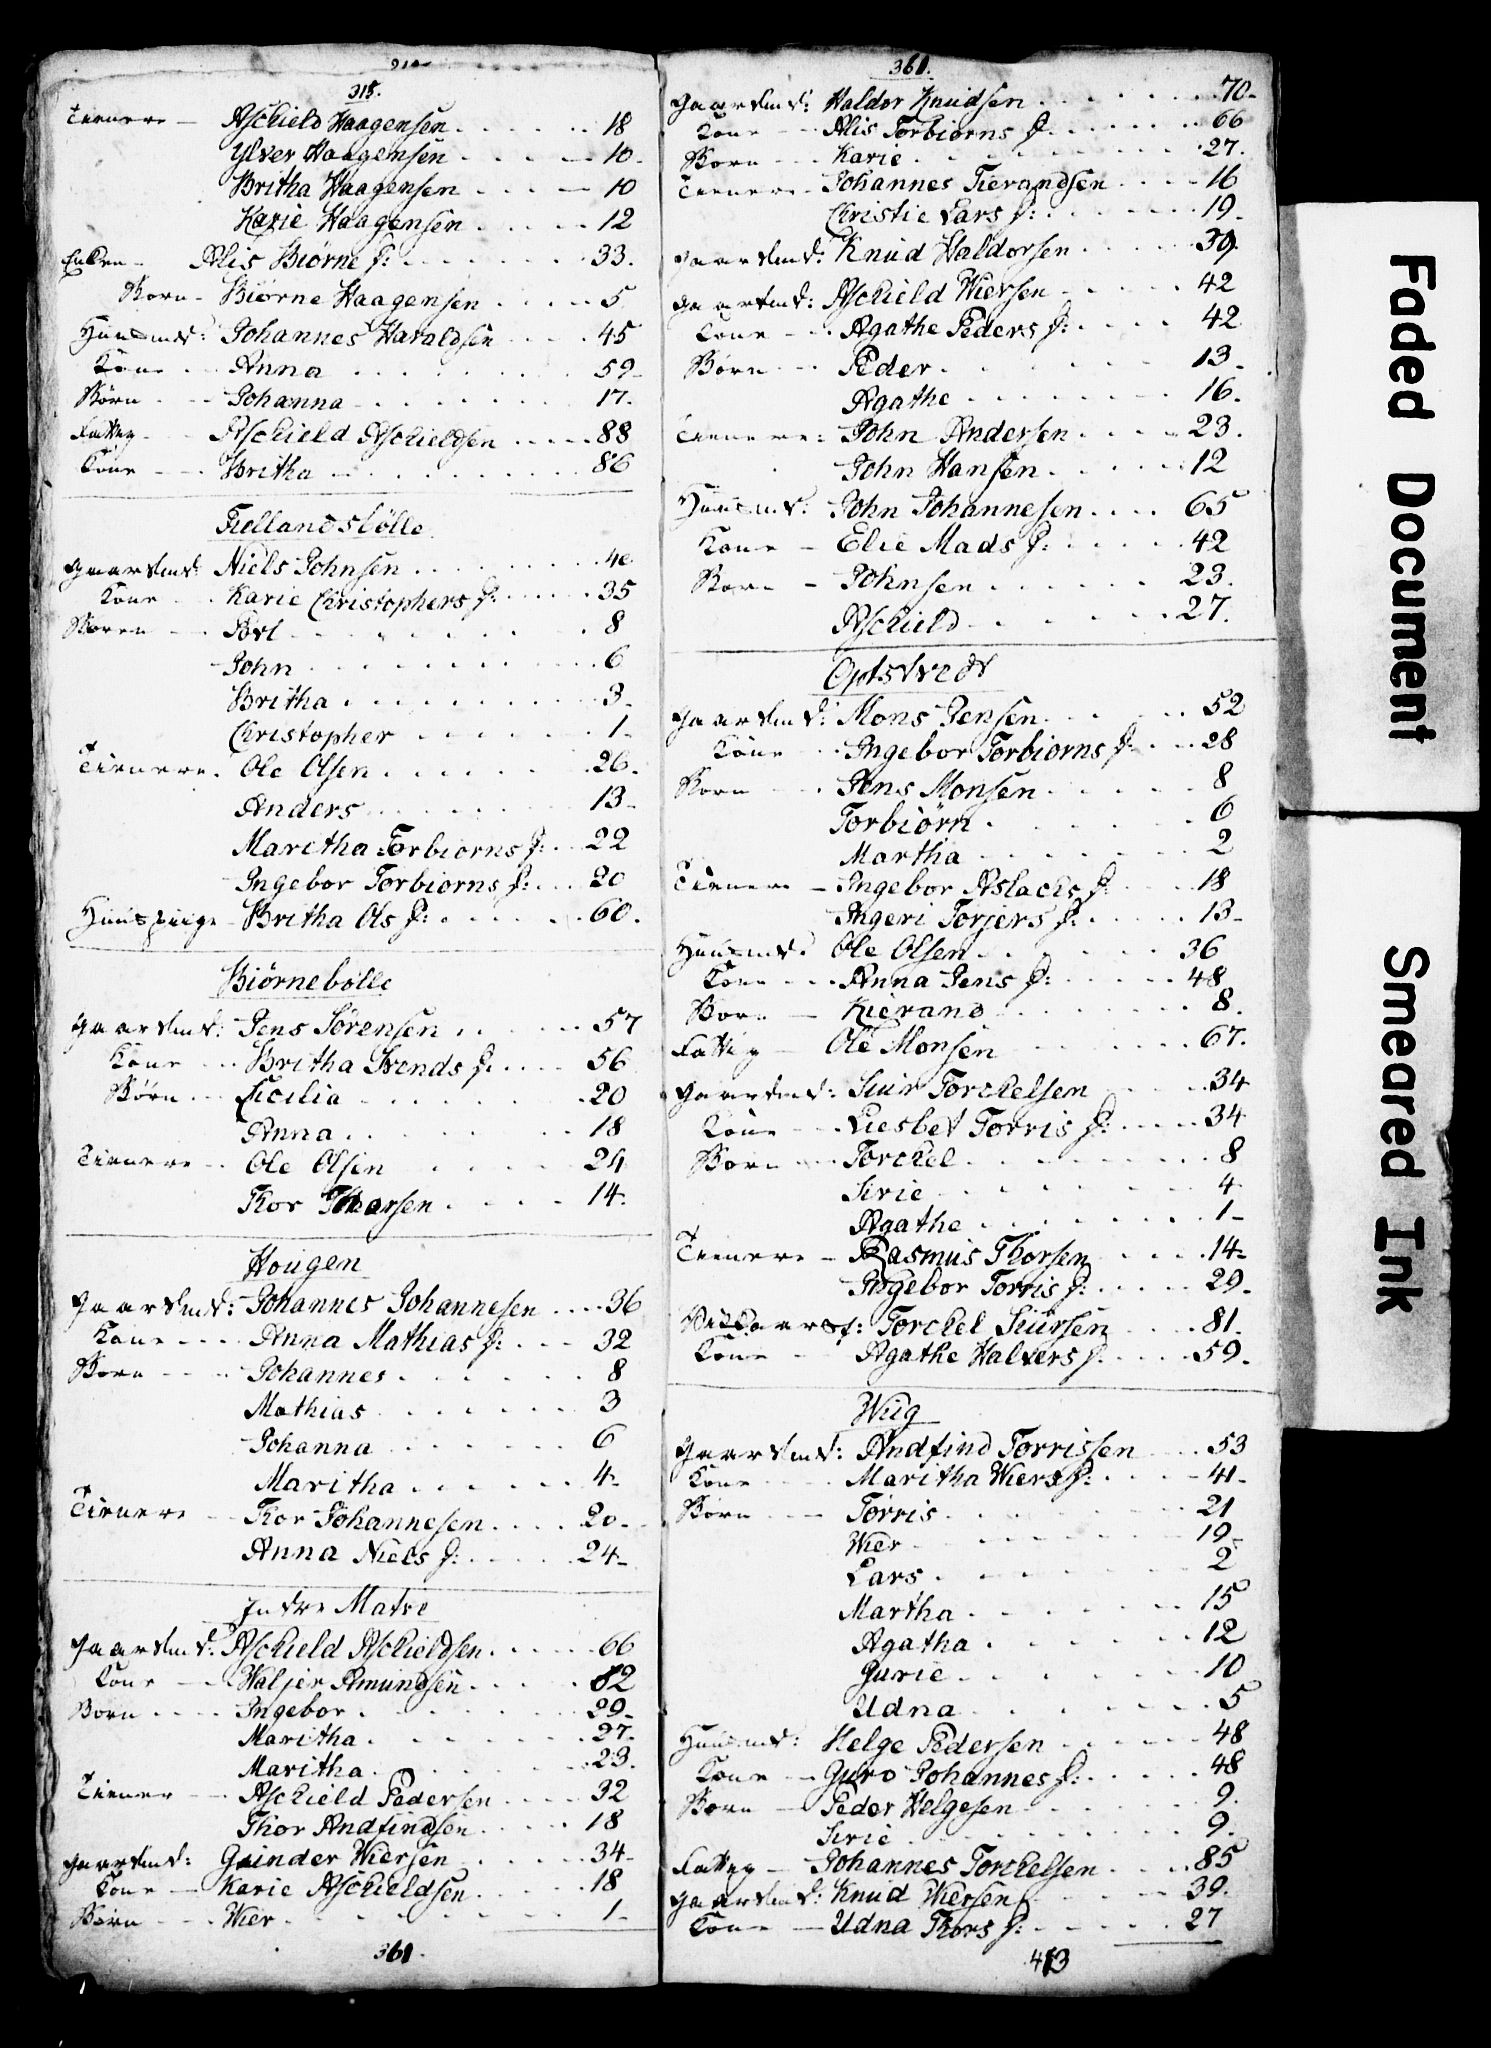 315.
Tienere - Aschield Haagensen 18
Ylver Haagensen 10
Britha Haagensen 10
Karie Haagensen 12
Enken - Alis Biørne f: 33.
Born - Biørne Haagensen 5
Huusmd: Johannes Haraldsen 45
Kone - Anna 59
Børn - Johanna 17.
Fattig - Aschield Aschieldsen 88
Kone - Britha 86
Fiellandsbølle
Gaardmd: Niels Johnsen 40
Kone - Karie Christophers f: 35
Børn - Povl 8
John 6
Britha 3
Christopher 1
Tienere. Ole Olsen 26.
Anders 13
Maritha Torbiorns f: 22
Ingebor Torbiorns f: 20
Huuspige - Britha Ols f: 60.
Biørnebølle
Gaardmd: Jens Sørensen 57
Kone - Britha Svends f. 56
Børn - Sicilia 20
Anna 18
Tienere - Ole Olsen 24
Thor Thorsen 14.
Hougen
Gaardmd: Johannes Johannesen 36
Kone - Anna Mathias f: 32
Børn - Johannes 8
Mathias 3
Johanna 6
Maritha 4
Tienere - Thor Johannesen 20
Anna Niels f: 24
Indre Matre
Gaardmd: Aschield Aschieldsen 66
Kone - Waljer Amundsen 62
Børn - Ingebor 29
Maritha 27
Maritha 23.
Tiener - Aschield Pedersen 32
Thor Andfindsen 18
Gaardmd: Gunder Wiersen 34
Kone - Karie Aschieldsen 18
Børn - Wier 1
361.
361.
Gaardmd: Haldor Knudsen 70
Kone - Alis Torbiorns f: 66
Børn - Karie 27.
Tienere - Johannes Tierandsen 16
Christie Lars f: 19
Gaardmd: Knud Haldorsen 39
Gaardmd: Aschield Wiersen 42
Kone - Agathe Peders f: 42
Børn - Peder 13
Agathe 16.
Tienere: John Andersen 23.
John Hansen 12
Huusmd: John Johannesen 65
Kone - Elie Mads f: 42
Børn - Johnsen 23.
Aschield 27.
Optstvedt
Gaardmd: Mons Jensen 52
Kone - Ingebor Torbiorns f: 28
Børn - Jens Monsen 8
Torbiørn 6
Martha 2
Tienere - Ingebor Aslachs f: 18
Ingeri Torjers f: 13
Huusmd: Ole Olsen 36
Kone - Anna Jens f: 48
Børn - Kierand 8.
Fattig - Ole Monsen 67.
Gaardmd: Siur Torckelsen 34
Kone - Liesbet Torris f: 34
Børn - Torckel 8
Sirie 4
Agathe 1
Tienere - Rasmus Thorsen 14
Ingebor Torris f: 29
Torckel Siursen 81.
Kone - Agathe Halvers f. 59
Wiig
Gaardmd: Andfind Torrissen 53
Kone - Maritha Wiers f: 41
Børn - Torris 21
Wier 19
Lars 2
Martha 15
Agatha 12
Gurie 10
Udna 5
Huusmd: Helge Pedersen 48
Kone - Guro Johannes f: 48
Børn - Peder Helgesen 9.
Sirie 9.
Fattig - Johannes Torckelsen 85
Gaardmd: Knud Wiersen 39.
Kone - Udna Thors f: 27
413
Faded Document
Smeared Ink